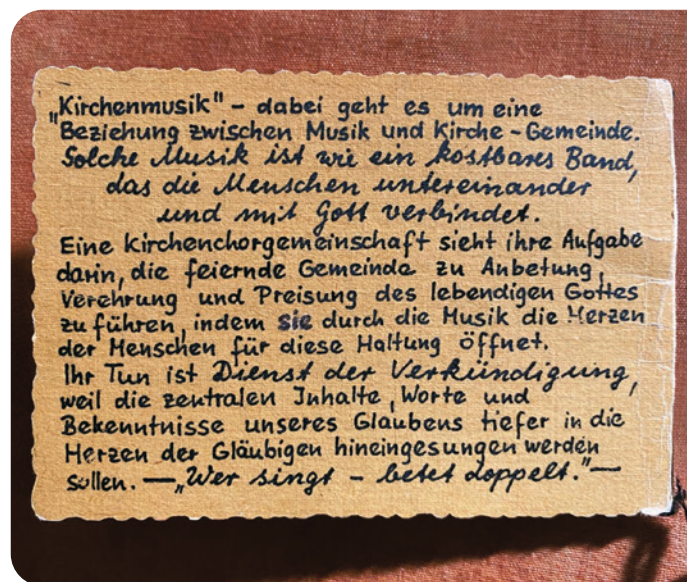 „Kirchenmusik" – dabei geht es um eine
Beziehung zwischen Musik und Kirche - Gemeinde.
Solche Musik ist wie ein kostbares Band,
das die Menschen untereinander
und mit Gott verbindet.
Eine Kirchenchorgemeinschaft sieht ihre Aufgabe
darin, die feiernde Gemeinde zu Anbetung,
Verehrung und Preisung des lebendigen Gottes
zu führen, indem sie durch die Musik die Herzen
der Menschen für diese Haltung öffnet.
Ihr Tun ist Dienst der Verkündigung,
weil die zentralen Inhalte, Worte und
Bekenntnisse unseres Glaubens tiefer in die
Herzen der Gläubigen hineingesungen werden
sollen. — „Wer singt – betet doppelt." —